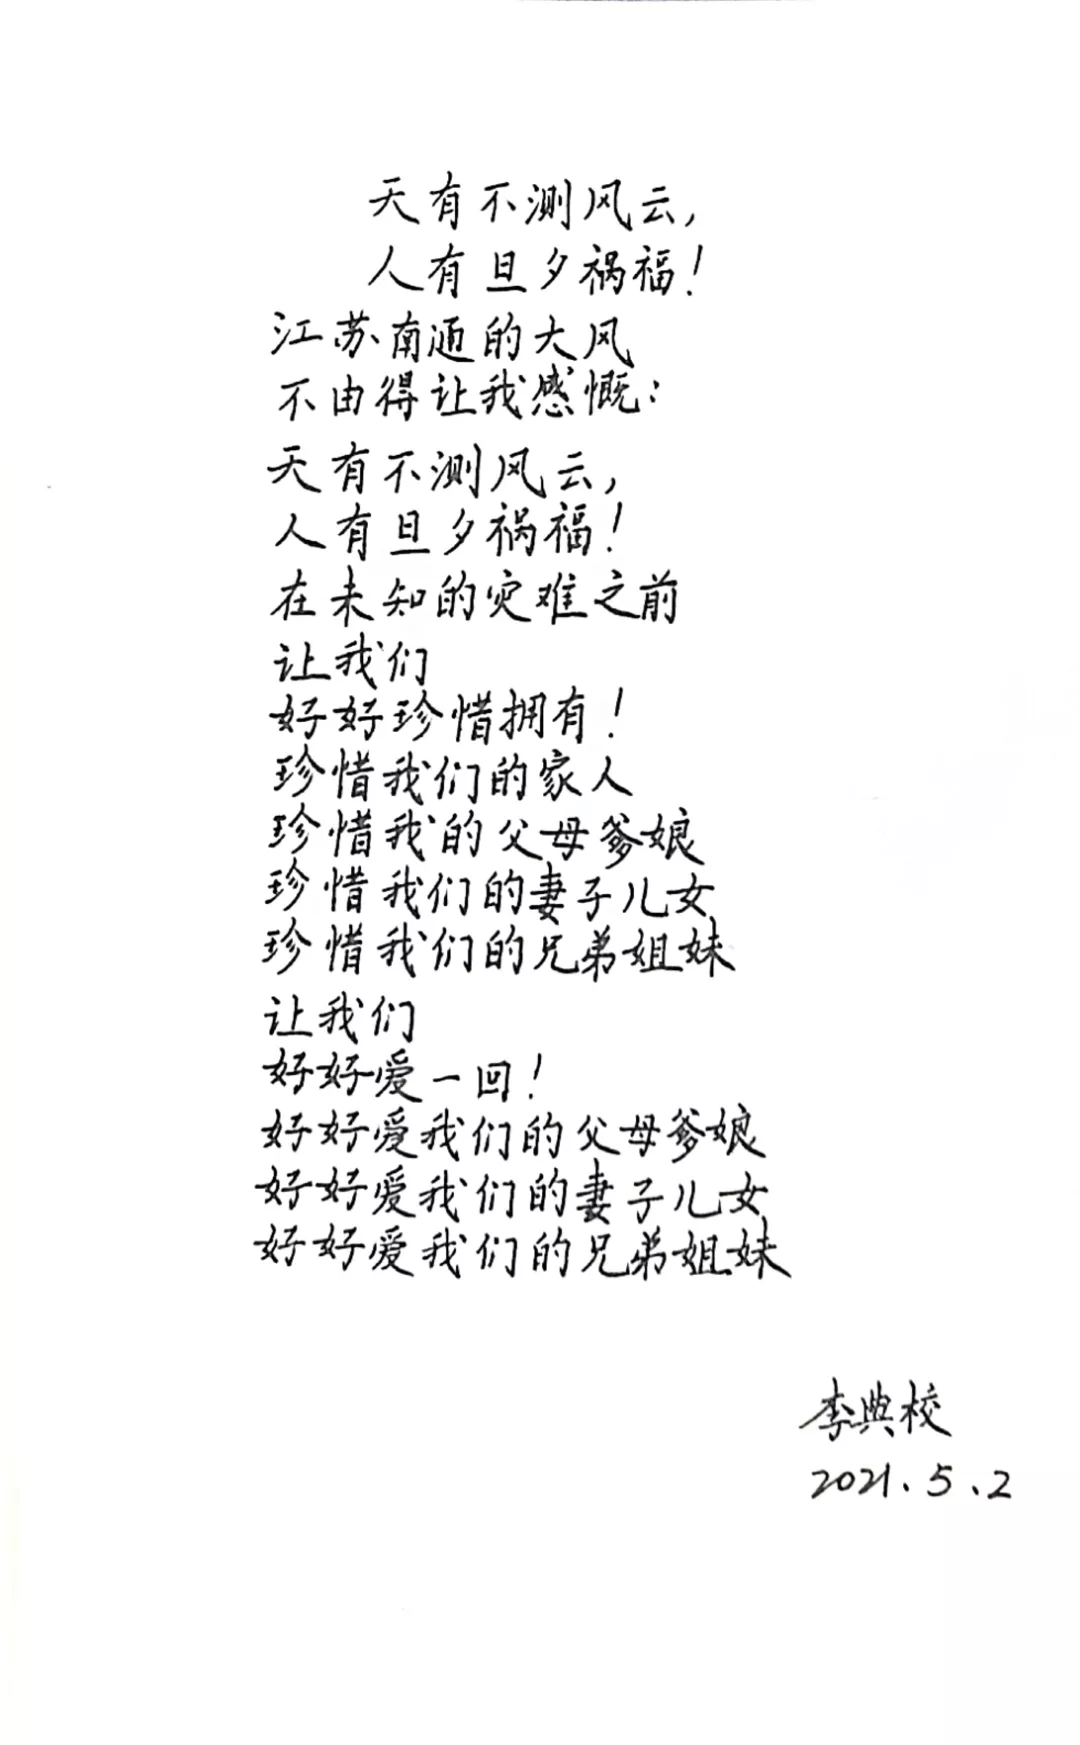 天有不测风云,
人有旦夕祸福!
江苏南通的大风
不由得让我感慨:
天有不测风云,
人有旦夕祸福!
在未知的灾难之前
让我们
好好珍惜拥有!
珍惜我们的家人
珍惜我的父母爹娘
珍惜我们的妻子儿女
珍惜我们的兄弟姐妹
让我们
好好爱一回!
好好爱我们的父母爹娘
好好爱我们的妻子儿女
好好爱我们的兄弟姐妹
李典校
2021.5.2